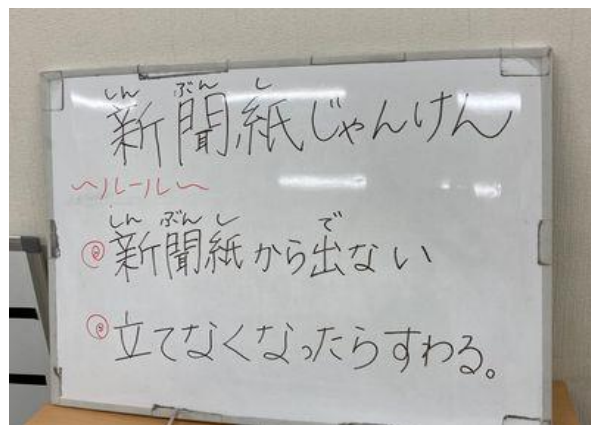 しん ぶん し
新聞紙じゃんけん
～ルール～
しん ぶん し で
◎新聞紙から出ない
◎立てなくなったらすわる。